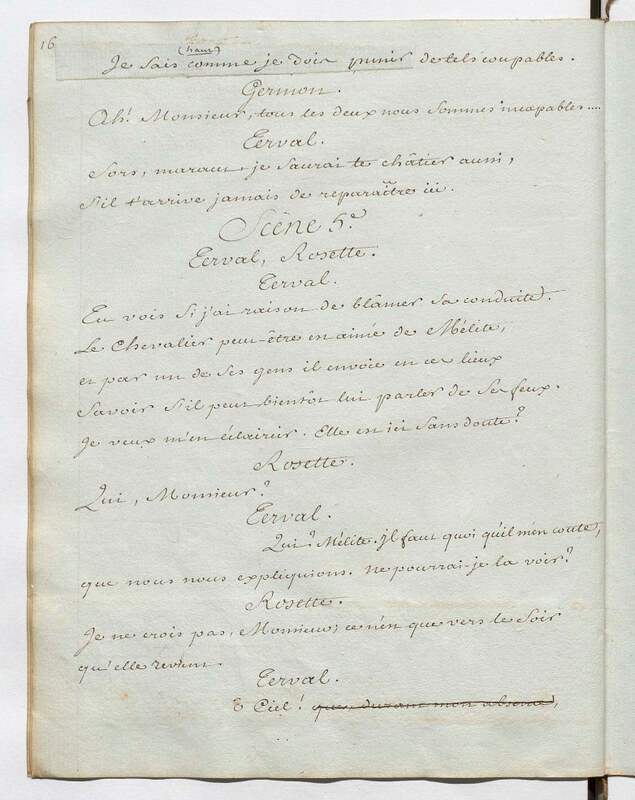 16
(haut)
Je sais comme je dois punir de tels coupables.
Germon.
Ah! Monsieur, tous les deux nous sommes incapables....
Terval.
Sors, maraut, je saurai te châtier aussi,
s'il t'arrive jamais de reparaître ici.
Scène 5e
Terval, Rosette.
Terval.
Tu vois si j'ai raison de blâmer sa conduite.
Le Chevalier peut-être est aimé de Mélite,
et par un de ses gens il envoie en ces lieux
savoir s'il peut bientôt lui parler de ses feux.
Je veux m'en éclaircir. Elle est ici sans doute?
Rosette.
Qui, Monsieur?
Terval.
Qui? Mélite. il faut quoi qu'il m'en coute,
que nous nous expliquions. ne pourrai-je la voir?
Rosette.
Je ne crois pas, Monsieur; ce n'est que vers le soir
qu'elle revient.
Terval.
O Ciel! que, durant mon absence,